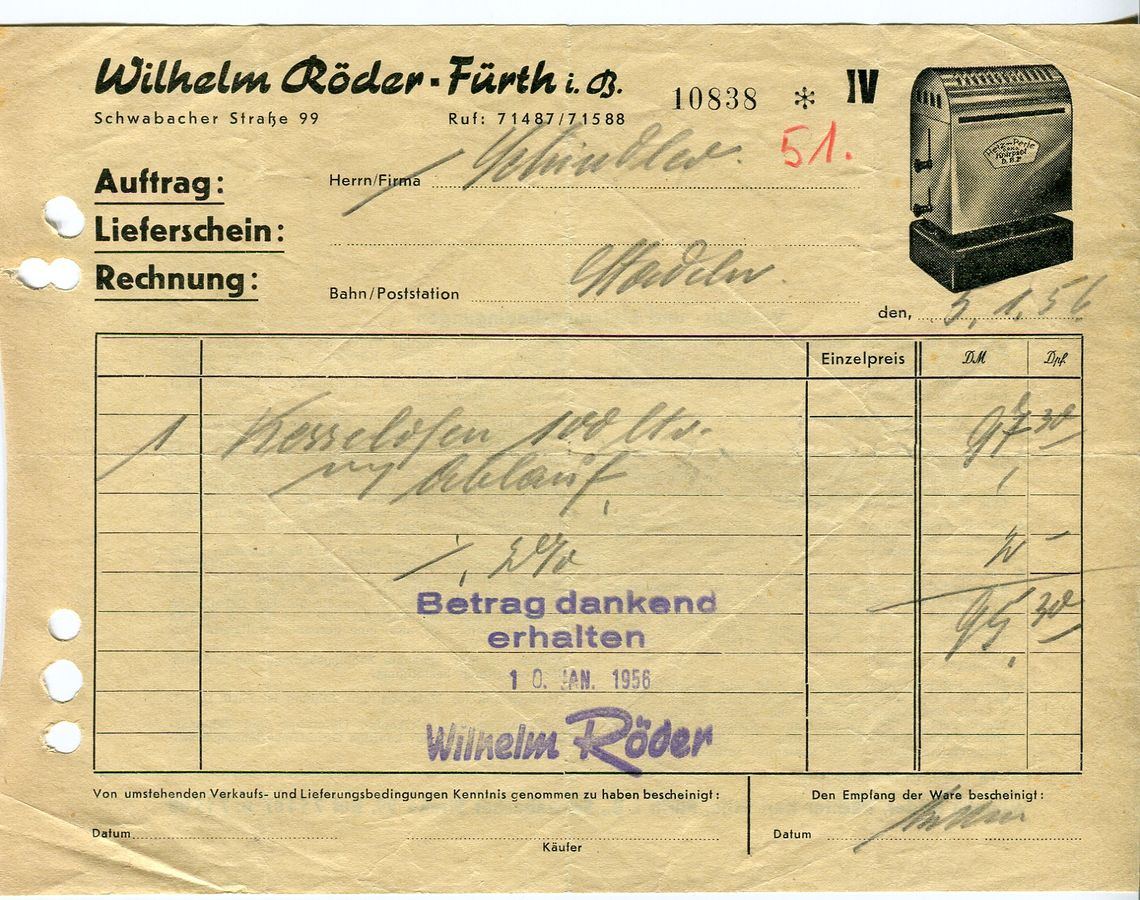 Wilhelm Röder - Fürth i. B.
Schwabacher Straße 99
Ruf: 71487/71588
10838 * IV
51.
Heiz-Perle
D.R.P.
Auftrag:
Lieferschein:
Rechnung:
Herrn/Firma Schindler.
Bahn/Poststation Stadeln.
den, 5.1.56
Einzelpreis DM Dpf.
1 Kesselofen 100 ltr. 97 30
m/ Ablauf
./. 2% 2 -
95 30
Betrag dankend
erhalten
10. JAN. 1956
Wilhelm Röder
Von umstehenden Verkaufs- und Lieferungsbedingungen Kenntnis genommen zu haben bescheinigt:
Datum
Käufer
Den Empfang der Ware bescheinigt:
Datum